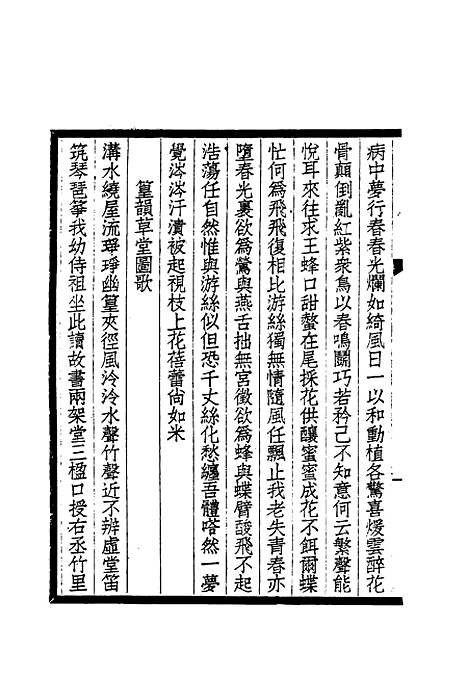 病中夢行春春光爛如綺風日一以和動植各驚喜煖雲醉花
骨顛倒亂紅紫衆鳥以春鳴鬭巧若矜己不知意何云繁聲能
悅耳來往求王蜂口甜螫在尾採花供釀蜜蜜成花不餌爾蝶
忙何爲飛飛復相比游絲獨無情隨風任飄止我老失青春亦
墮春光裏欲爲鶯與燕舌拙無宮徵欲爲蜂與蝶臂酸飛不起
浩蕩任自然惟與游絲似但恐千丈絲化愁纏吾體嗒然一夢
覺涔涔汗漬被起視枝上花蓓蕾尙如米
篁韻草堂圖歌
溝水繞屋流琤琤幽篁夾徑風泠泠水聲竹聲近不辨虛堂笛
筑琴琶箏我幼侍祖坐此讀故書兩架堂三楹口授右丞竹里